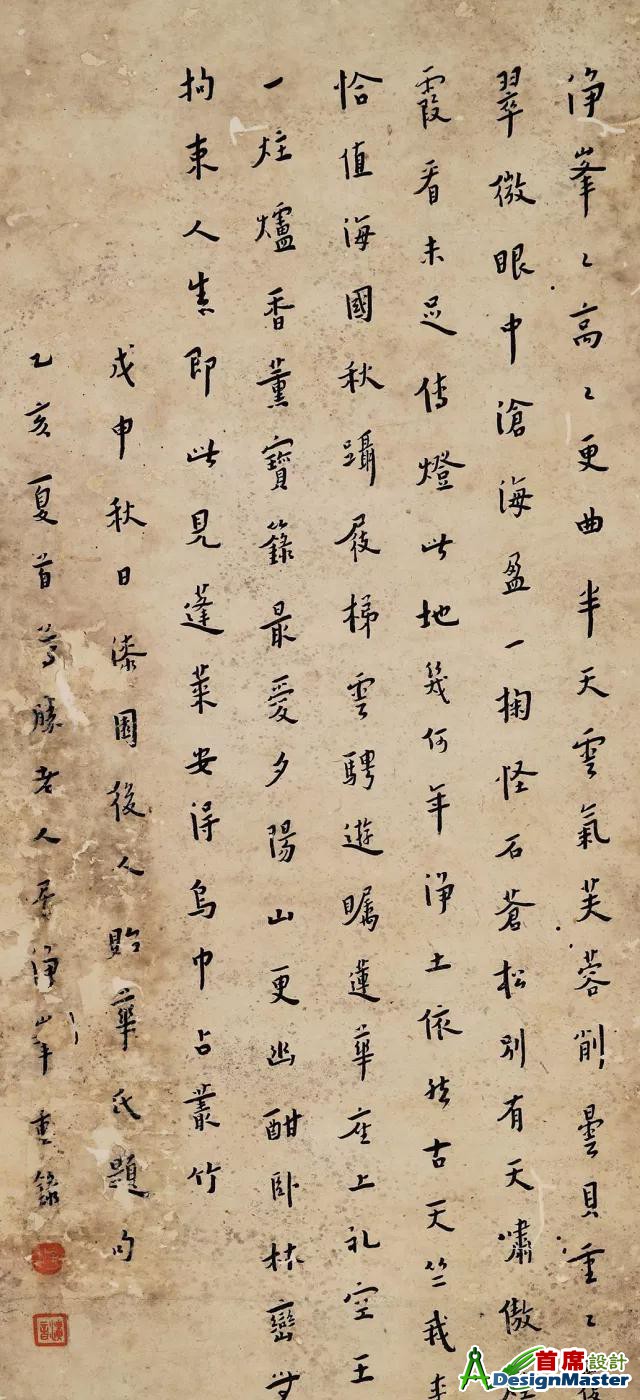 淨峯〻高〻更曲半天雲氣芙蓉削曇貝重〻
翠微眼中滄海盈一掬怪石蒼松別有天嘯傲
霞看未足傳燈此地幾何年淨土依然古天竺我來
恰值海國秋躡屐梯雲騁遊矚蓮華座上礼空王
一炷爐香薰寶籙最愛夕陽山更幽酣臥林巒無
拘束人生即此見蓬萊安得烏巾占叢竹
戊申秋日漆園後人貽華氏題句
乙亥夏首尊勝老人居淨峯重錄
首席設計
ADesignMaster